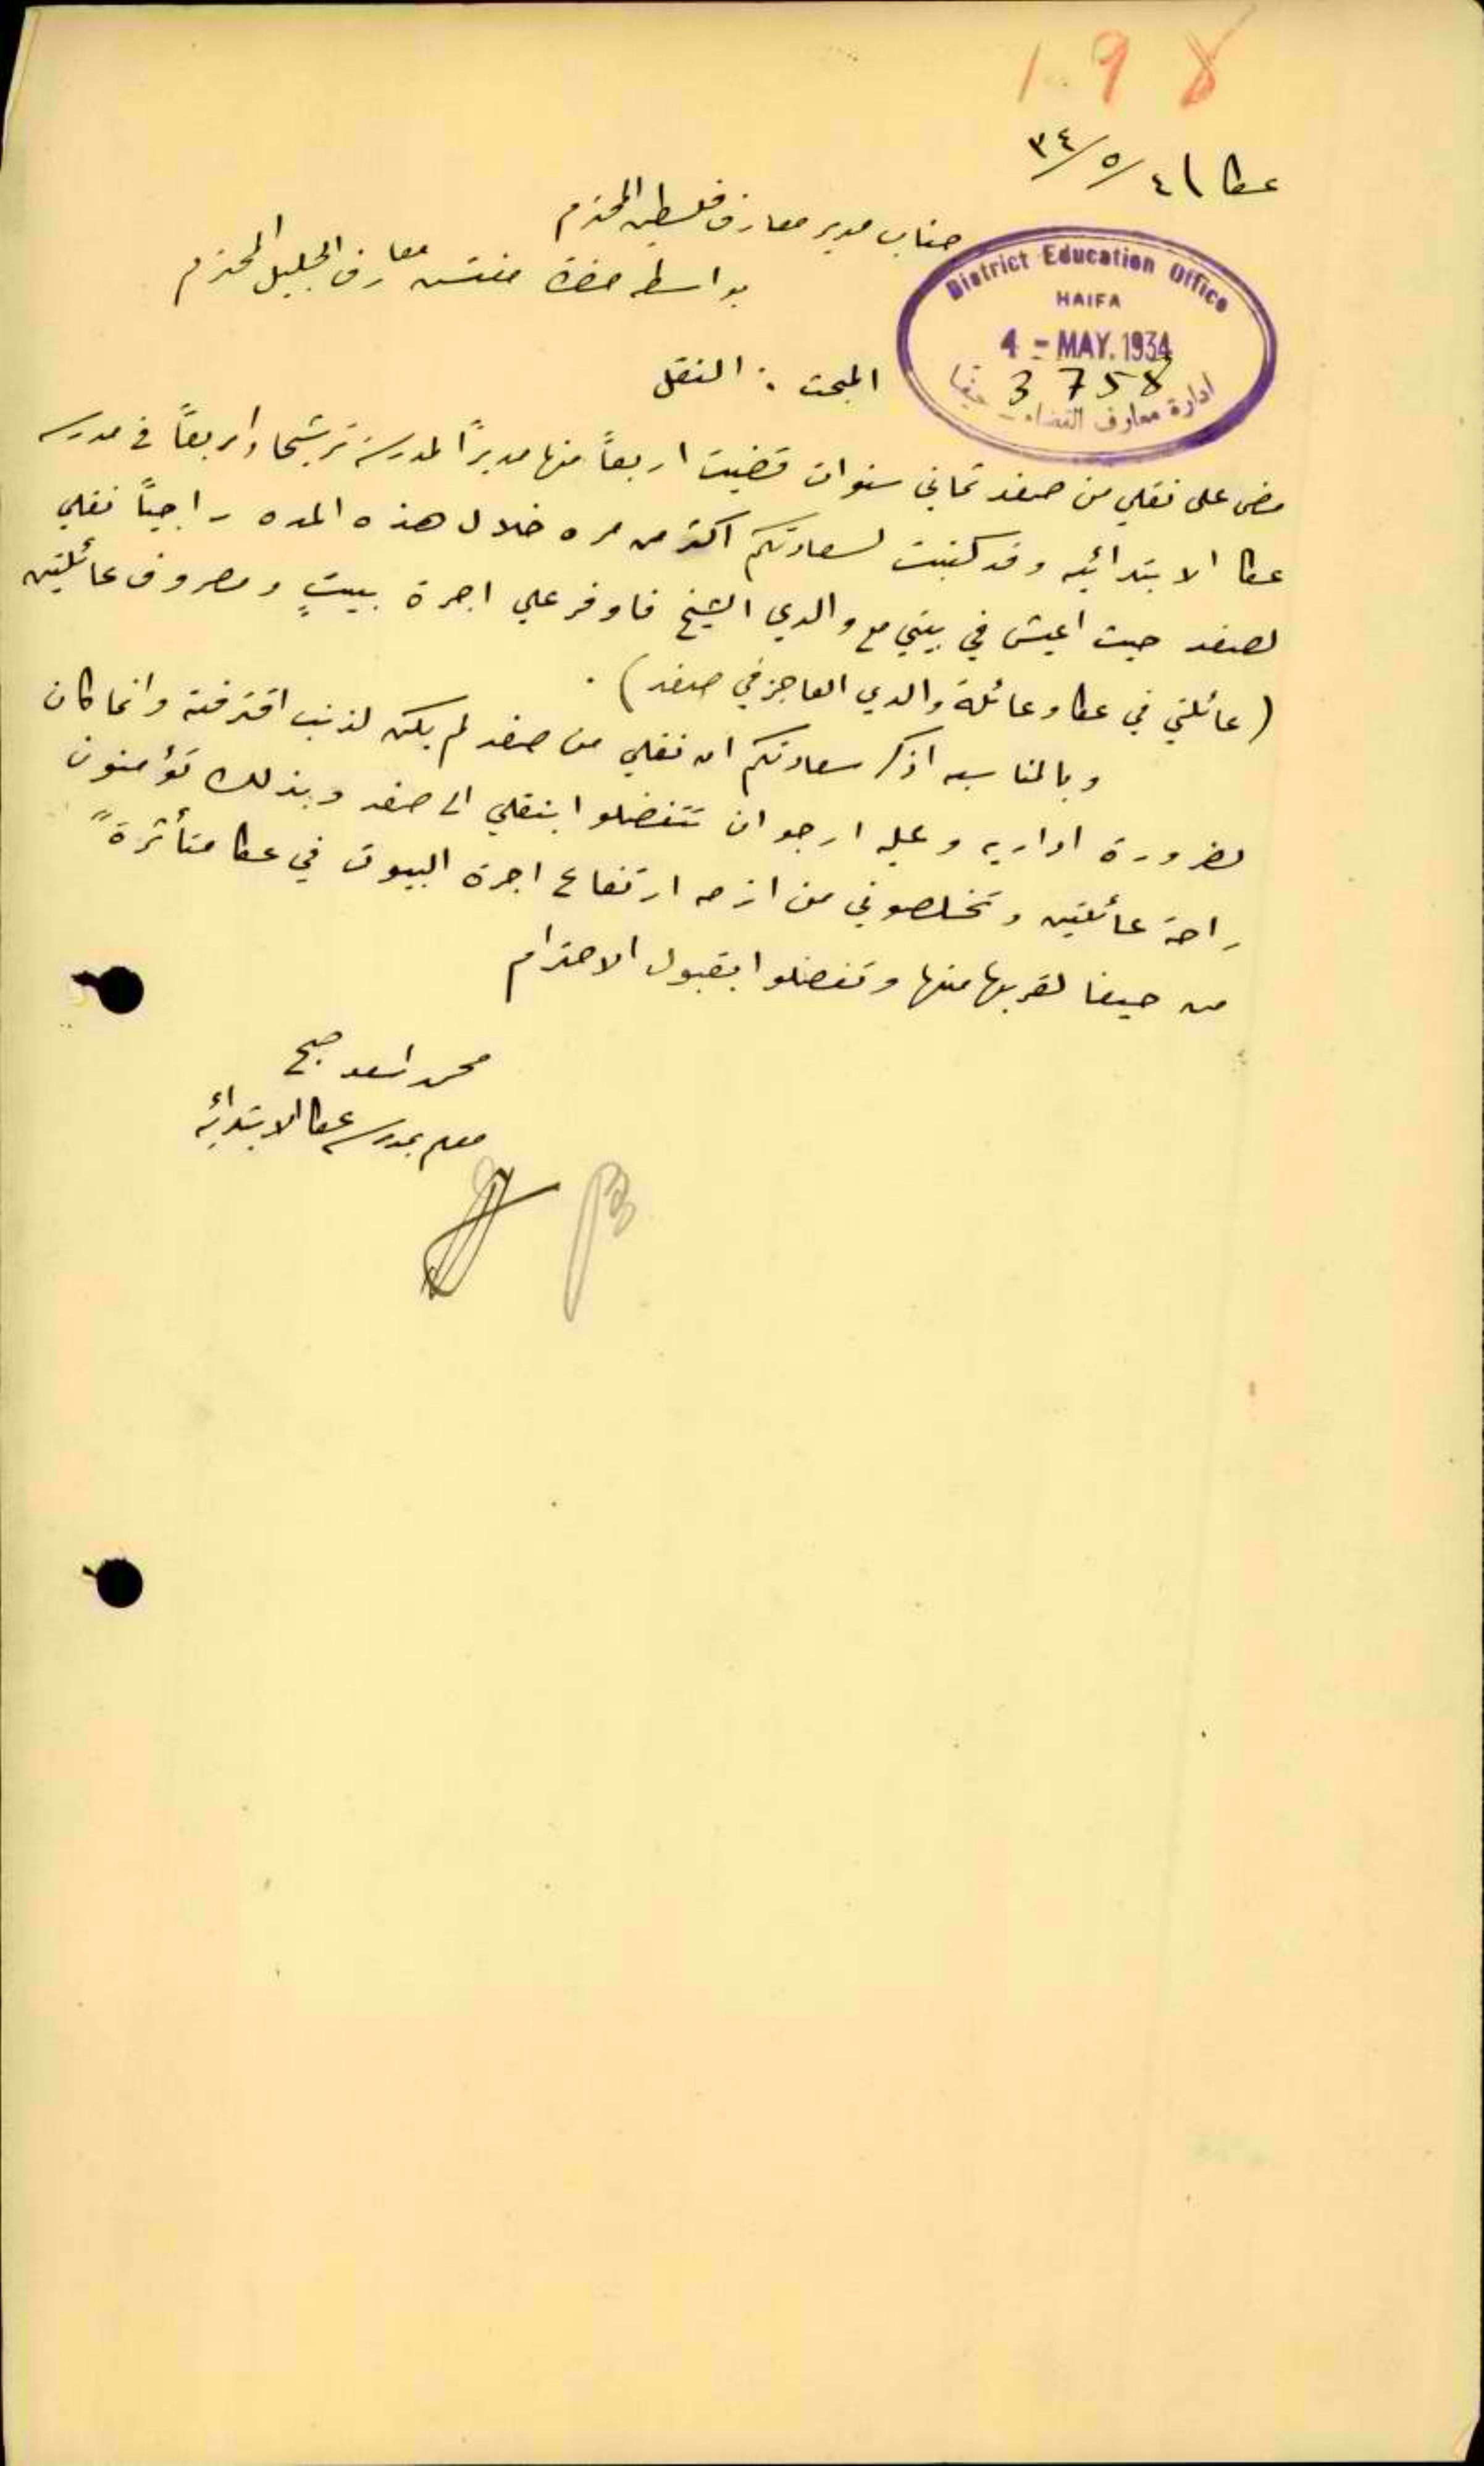 198
عكا ٤/٥/٣٤
جناب مدير معارف فلسطين المحترم
بواسطه حضرة مفتش معارف الجليل المحترم
District Education Office
HAIFA
4 - MAY. 1934
3758
ادارة معارف القضاء - حيفا
المبحث : النقل
مضى على نقلي من صفد ثماني سنوات قضيت اربعاً منها مديراً لمدرسة ترشيحا واربعاً في مدرسه
عكا الابتدائيه وقد كتبت لسعادتكم اكثر من مره خلال هذه المده راجياً نقلي
لصفد حيث اعيش في بيتي مع والدي الشيخ فاوفر علي اجرة بيتٍ ومصروف عائلتين
(عائلتي في عكا وعائلة والدي العاجز في صفد) .
وبالمناسبه اذكر سعادتكم ان نقلي من صفد لم يكن لذنب اقترفته وانما كان
لضرورة اداريه وعليه ارجو ان تتفضلوا بنقلي الى صفد وبذلك تؤمنون
راحة عائلتين وتخلصوني من ازمه ارتفاع اجرة البيوت في عكا متأثرةً
من حيفا لقربها منها وتفضلوا بقبول الاحترام
محمد اسعد صبح
معلم بمدرسة عكا الابتدائيه